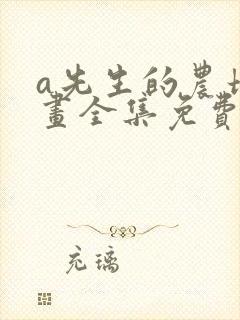 a先生的農場
畫全集免費
充璃